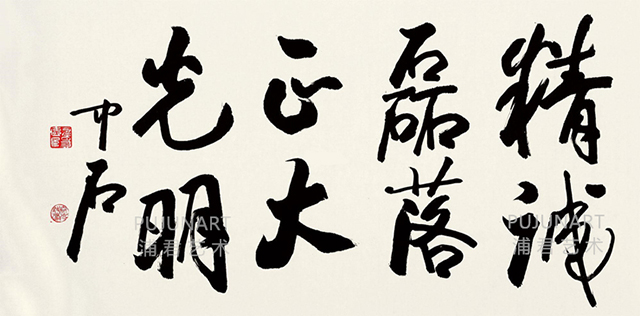 精诚
磊落
正大
光明
中石
PUJUNART
浦君艺术
PUJUNART
浦君艺术